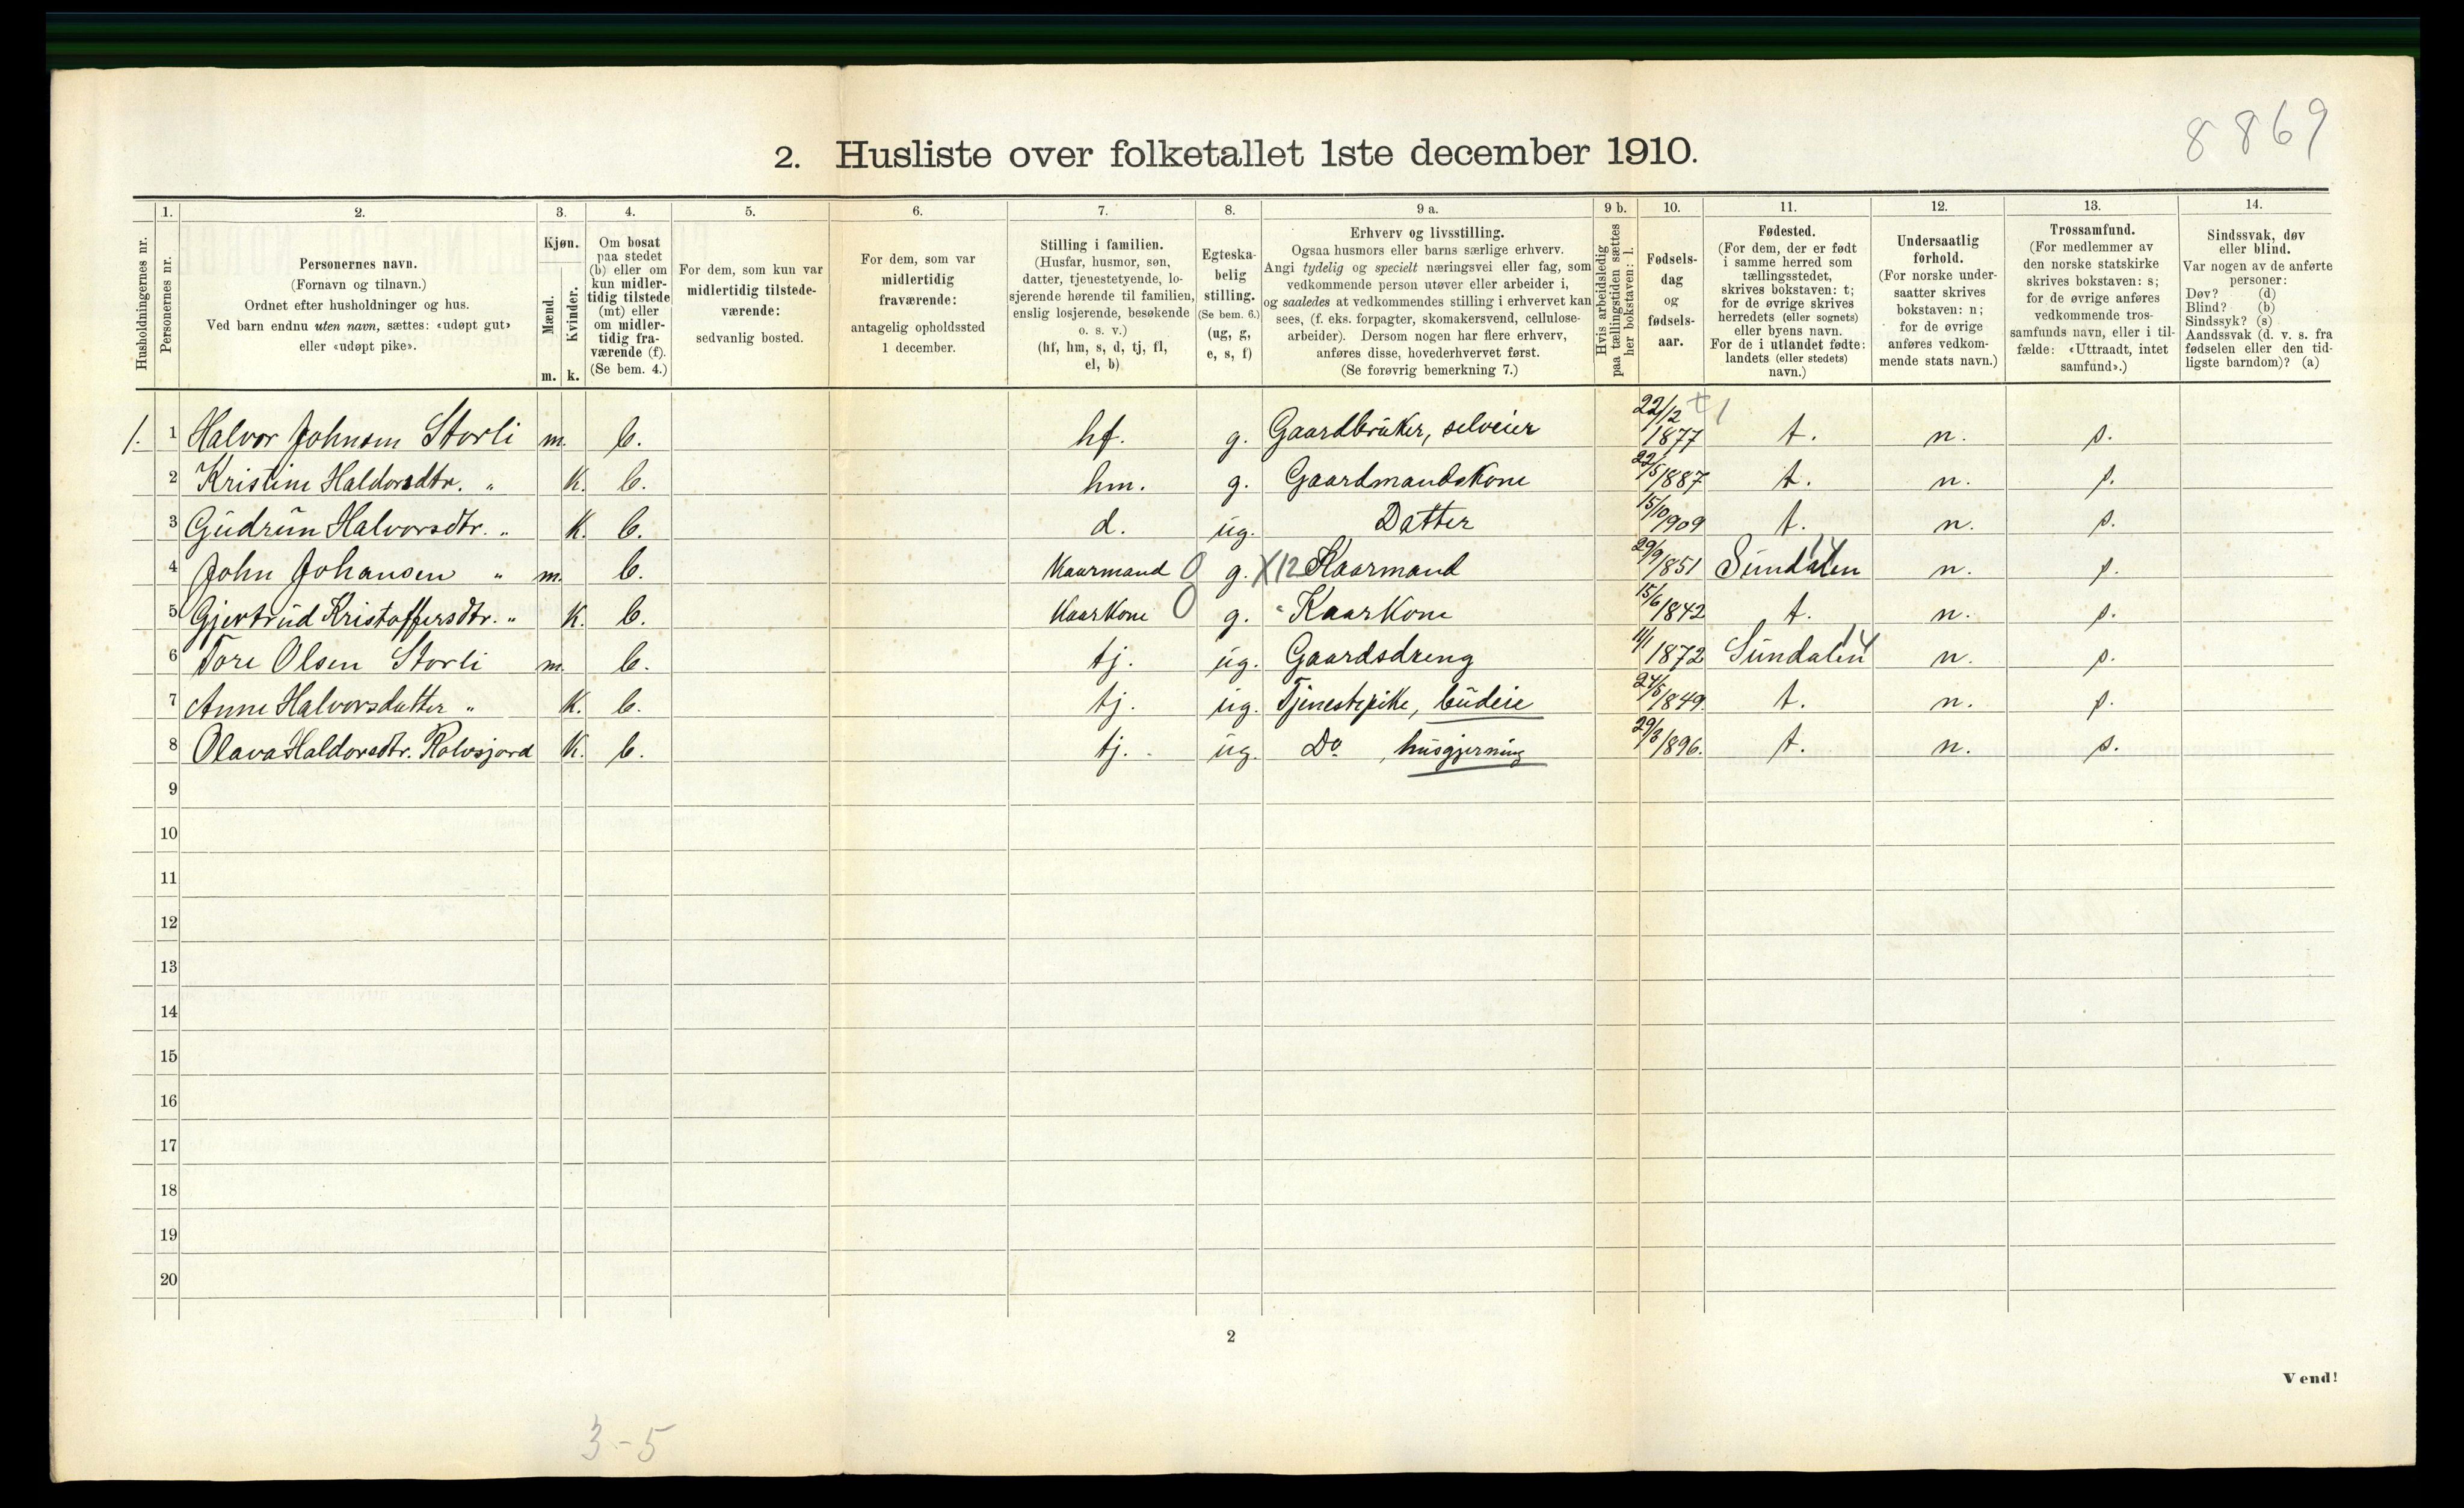 8869
2. Husliste over folketallet 1ste december 1910.
Husholdningernes nr.
1.
Personernes nr.
2.
Personernes navn.
(Fornavn og tilnavn.)
Ordnet efter husholdninger og hus.
Ved barn endnu uten navn, sættes: «udøpt gut»
eller «udøpt pike».
3.
Kjøn.
Mænd.
Kvinder.
m. k.
4.
Om bosat
paa stedet
(b) eller om
kun midler-
tidig tilstede
(mt) eller
om midler-
tidig fra-
værende (f).
(Se bem. 4.)
5.
For dem, som kun var
midlertidig tilstede-
værende:
sedvanlig bosted.
6.
For dem, som var
midlertidig
fraværende:
antagelig opholdssted
1 december.
7.
Stilling i familien.
(Husfar, husmor, søn,
datter, tjenestetyende, lo-
sjerende hørende til familien,
enslig losjerende, besøkende
o. s. v.)
(hf, hm, s, d, tj, fl,
el, b)
8.
Egteska-
belig
stilling.
(Se bem. 6.)
(ug, g,
e, s, f)
9 a.
Erhverv og livsstilling.
Ogsaa husmors eller barns særlige erhverv.
Angi tydelig og specielt næringsvei eller fag, som
vedkommende person utøver eller arbeider i,
og saaledes at vedkommendes stilling i erhvervet kan
sees, (f. eks. forpagter, skomakersvend, cellulose-
arbeider). Dersom nogen har flere erhverv,
anføres disse, hovederhvervet først.
(Se forøvrig bemerkning 7.)
9 b.
Hvis arbeidsledig
paa tællingstiden sættes
her bokstaven: l.
10.
Fødsels-
dag
og
fødsels-
aar.
11.
Fødested.
(For dem, der er født
i samme herred som
tællingsstedet,
skrives bokstaven: t;
for de øvrige skrives
herredets (eller sognets)
eller byens navn.
For de i utlandet fødte:
landets (eller stedets)
navn.)
12.
Undersaatlig
forhold.
(For norske under-
saatter skrives
bokstaven: n;
for de øvrige
anføres vedkom-
mende stats navn.)
13.
Trossamfund.
(For medlemmer av
den norske statskirke
skrives bokstaven: s;
for de øvrige anføres
vedkommende tros-
samfunds navn, eller i til-
fælde: «Uttraadt, intet
samfund».)
14.
Sindssvak, døv
eller blind.
Var nogen av de anførte
personer:
Døv? (d)
Blind? (b)
Sindssyk? (s)
Aandssvak (d. v. s. fra
fødselen eller den tid-
ligste barndom)? (a)
1. 1 Halvor Johnsen Storli m. b. hf. g. Gaardbruker, selveier 22/12 1877 t. n. s.
2 Kristine Haldorsdtr. " k. b. hm. g. Gaardmandskone 22/5 1887 t. n. s.
3 Gudrun Halvorsdtr. " k. b. d. ug. Datter 15/10 909 t. n. s.
4 John Johansen " m. b. Kaarmand 0 g. X12 Kaarmand 29/9 1851 Sundalen 14 n. s.
5 Gjertrud Kristoffersdtr. " k. b. Kaarkone 0 g. " Kaarkone 15/6 1842 t. n. s.
6 Tore Olsen Storli m. b. tj. ug. Gaardsdreng 11/1 1872 Sundalen 14 n. s.
7 Anne Halvorsdatter " k. b. tj. ug. Tjenestepike, budeie 24/5 1849. t. n. s.
8 Olava Haldorsdtr. Rolvsjord k. b. tj. ug. Do , husgjerning 29/3 1896. t. n. s.
9
10
11
12
13
14
15
16
17
18
19
20
2
Vend!
3-5